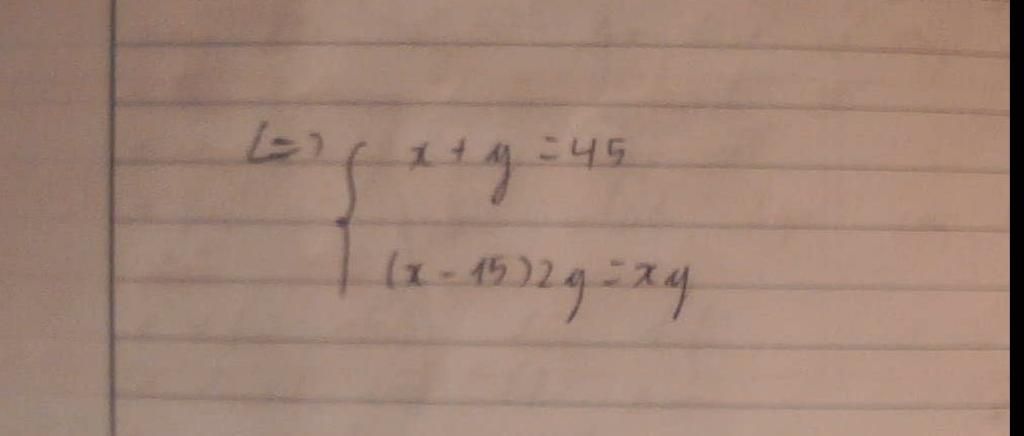 <=> { x + y = 45
(x - 15)2y = xy